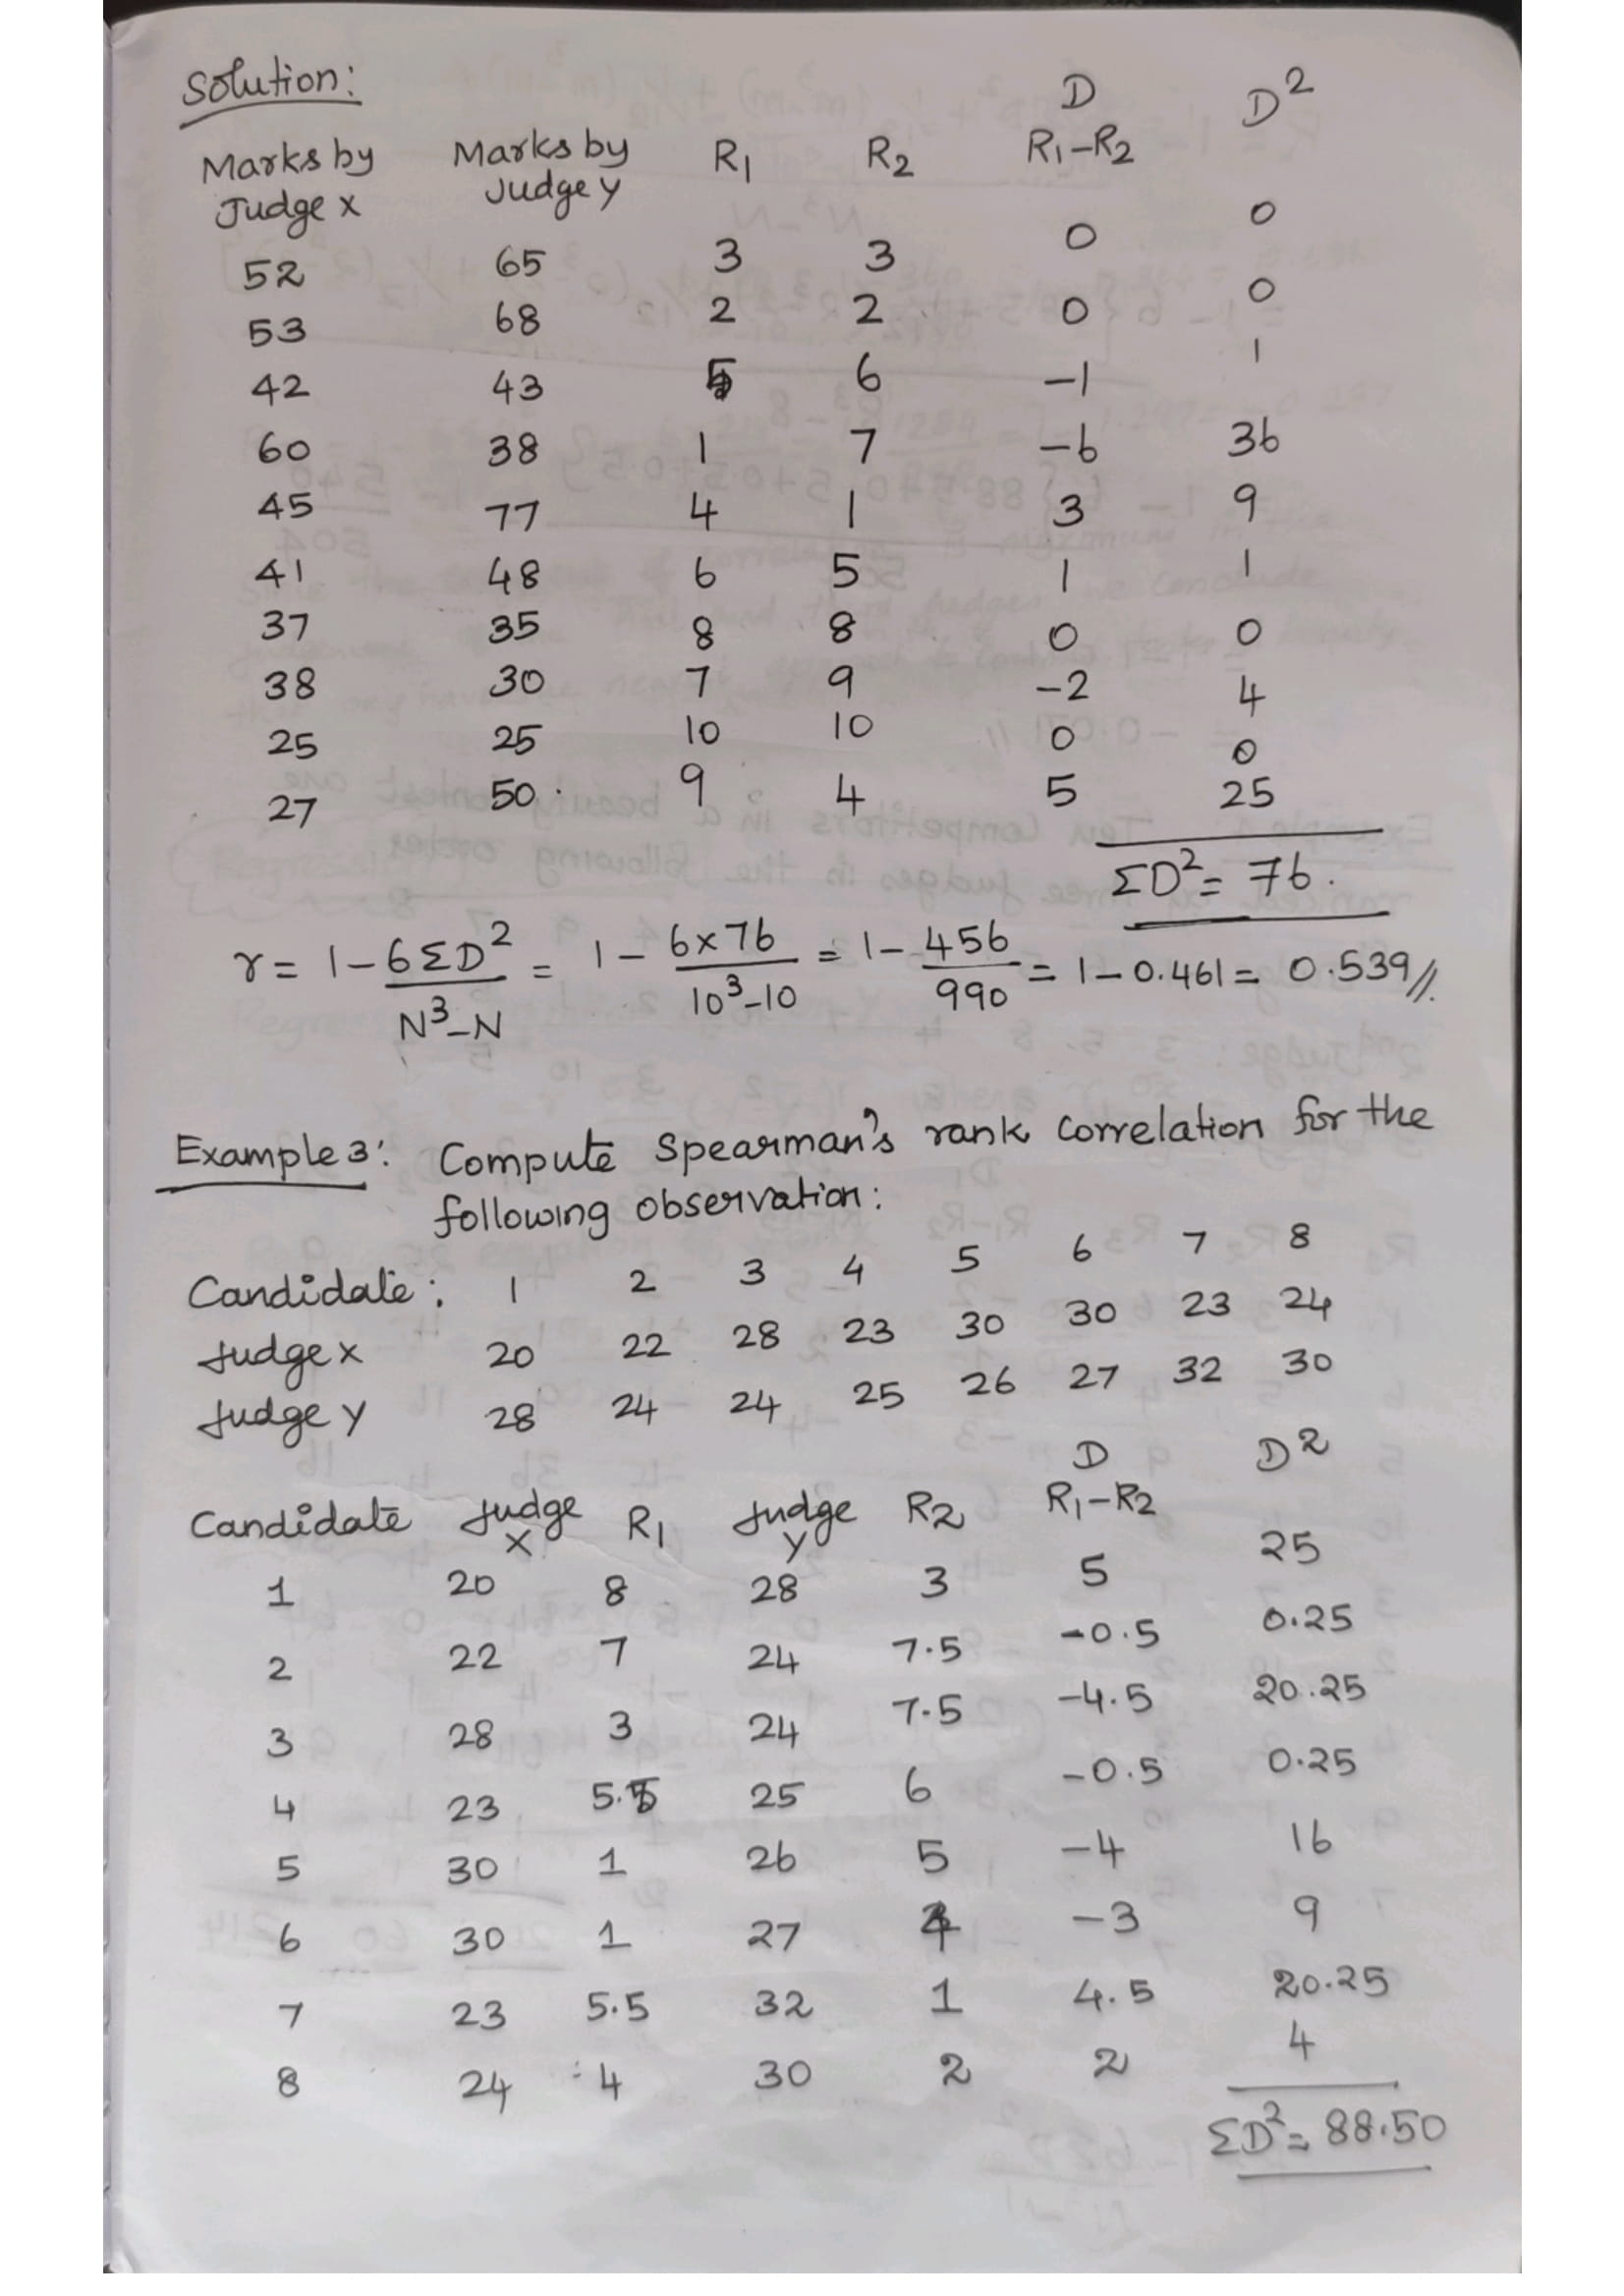 Solution:
Marks by Judge x Marks by Judge y R1 R2 D R1-R2 D²
52 65 3 3 0 0
53 68 2 2 0 0
42 43 5 6 -1 1
60 38 1 7 -6 36
45 77 4 1 3 9
41 48 6 5 1 1
37 35 8 8 0 0
38 30 7 9 -2 4
25 25 10 10 0 0
27 50 9 4 5 25
ΣD² = 76.
r = 1-6ΣD²/N³-N = 1 - 6x76/10³-10 = 1 - 456/990 = 1-0.461 = 0.539//.
Example 3: Compute Spearman's rank correlation for the
following observation:
Candidate: 1 2 3 4 5 6 7 8
Judge x 20 22 28 23 30 30 23 24
Judge y 28 24 24 25 26 27 32 30
Candidate Judge x R1 Judge y R2 D R1-R2 D²
1 20 8 28 3 5 25
2 22 7 24 7.5 -0.5 0.25
3 28 3 24 7.5 -4.5 20.25
4 23 5.5 25 6 -0.5 0.25
5 30 1 26 5 -4 16
6 30 1 27 4 -3 9
7 23 5.5 32 1 4.5 20.25
8 24 4 30 2 2 4
ΣD² = 88.50